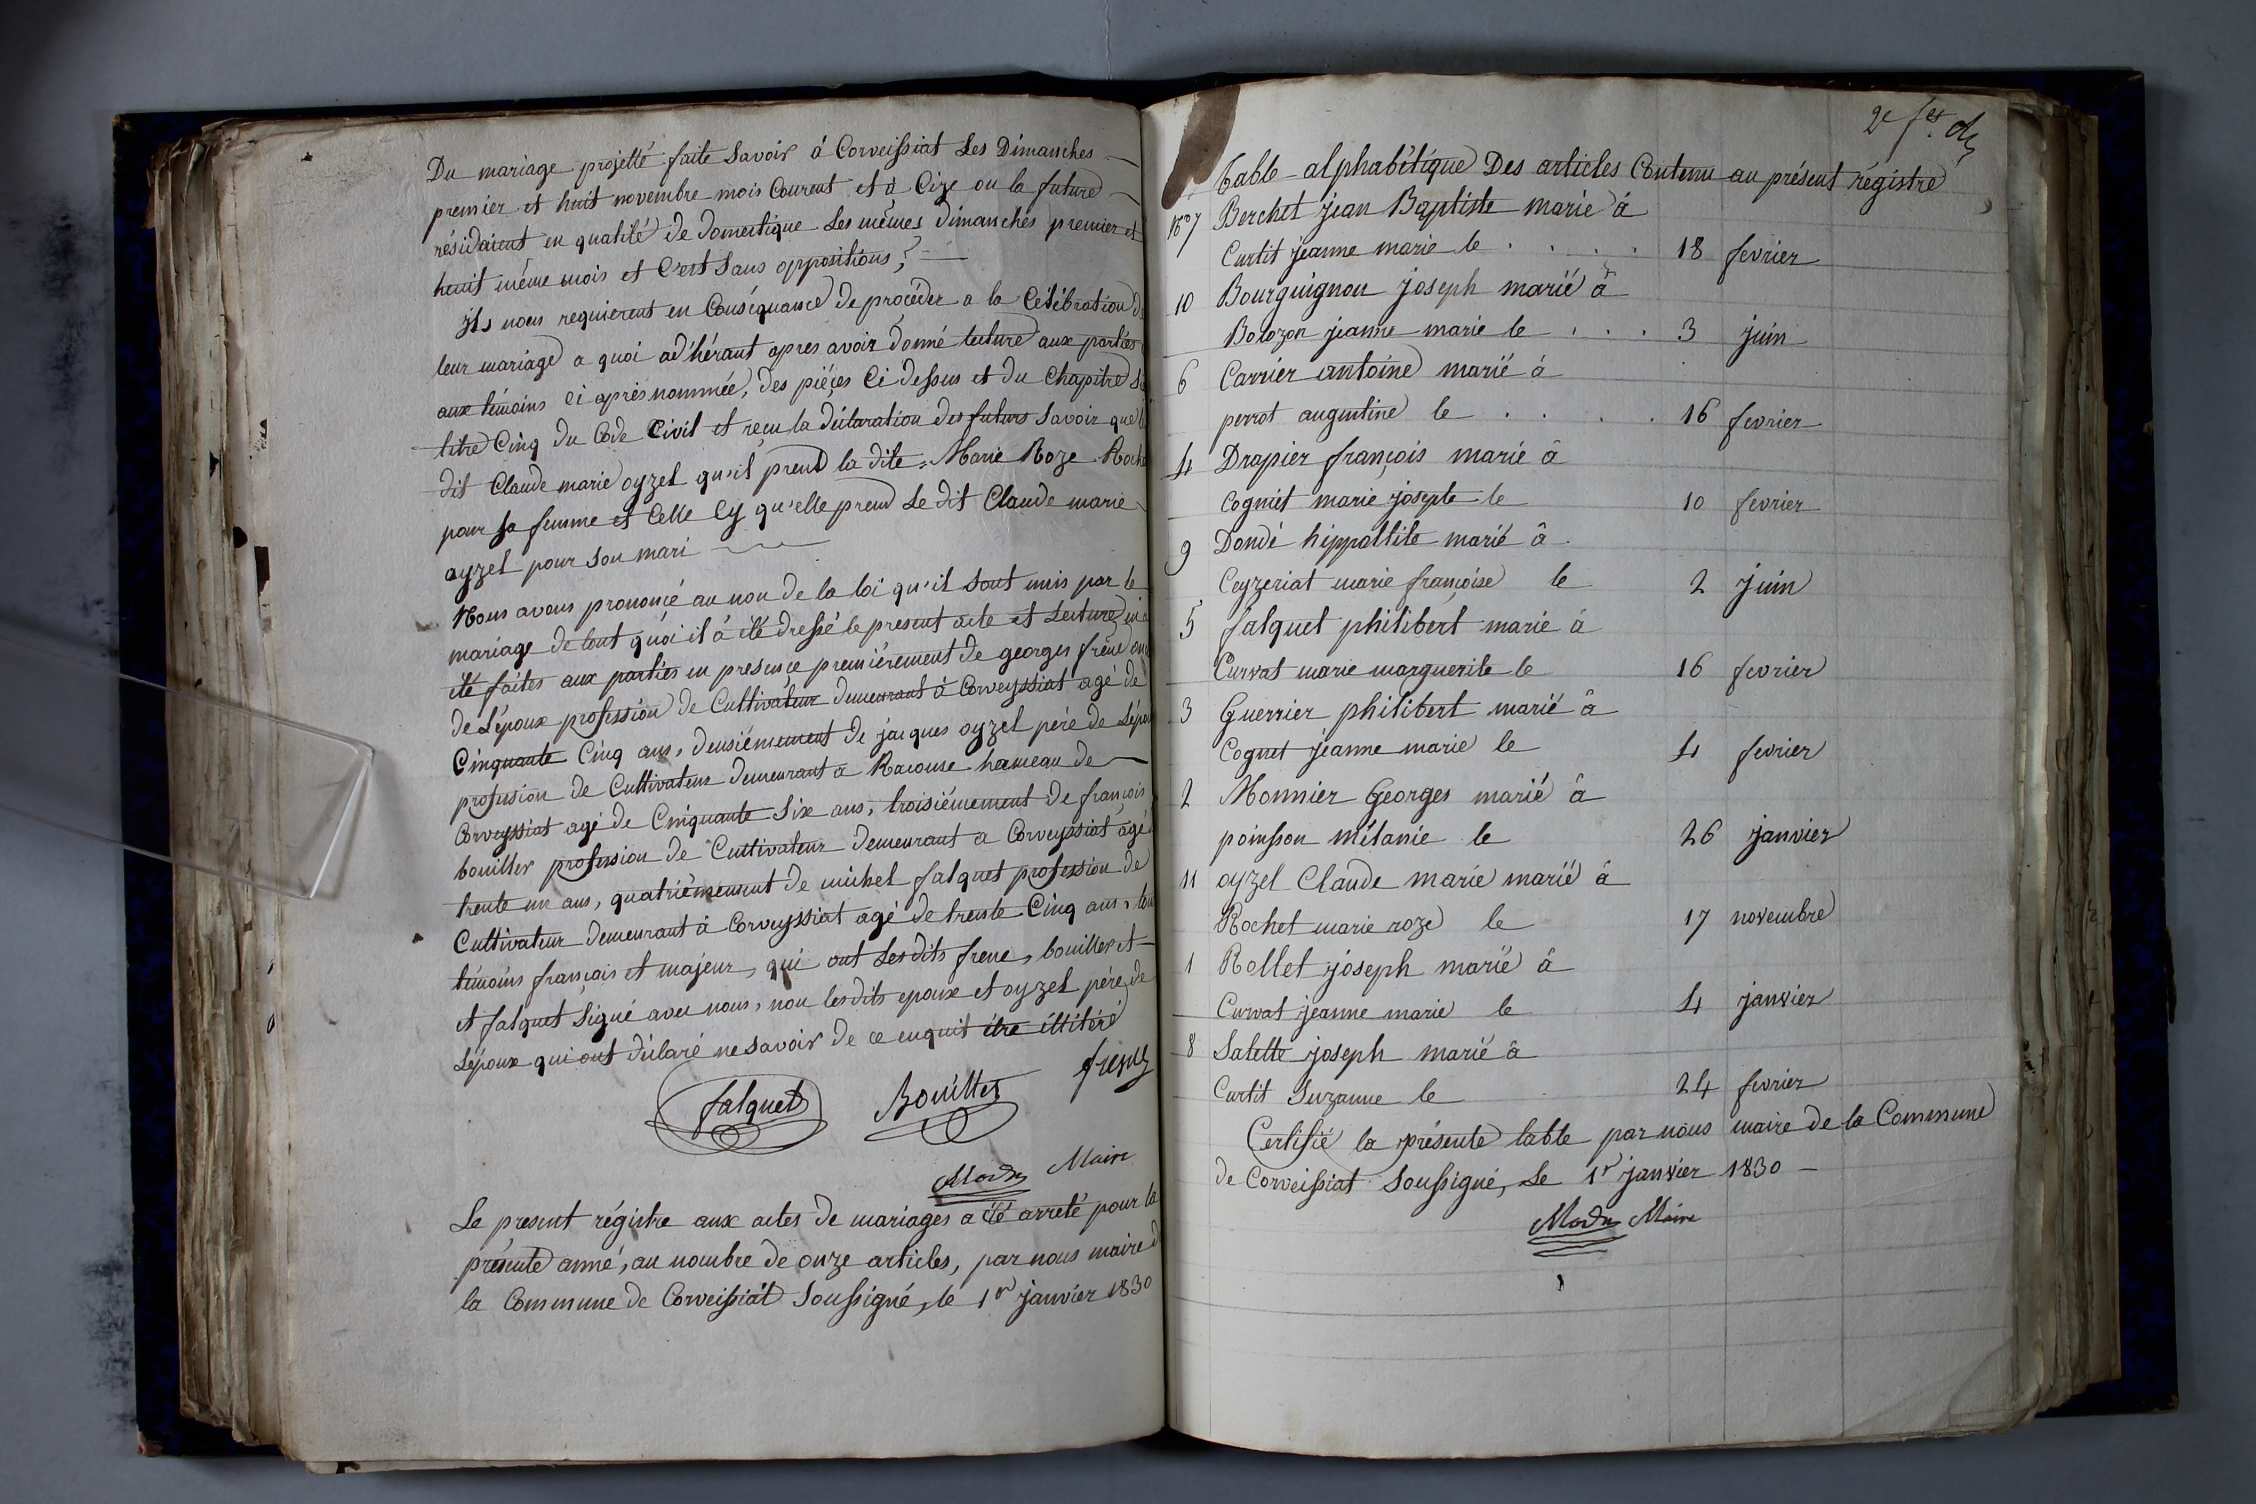 Du mariage projetté faite Savoir à Corveissiat Les Dimanches
premier et huit novembre mois Courent et à Cize ou la future
résidaient en qualité de domestique Les mêmes dimanches premier et
huit même mois et C'est Sans oppositions,
ils nous requierent en Conséquance de procéder a la Célébration de
leur mariage a quoi ad'hérant apres avoir donné lecture aux parties
aux témoins ci aprés nommée, des piéçes Ci dessus et du Chapitre
titre Cinq du Code Civil et reçu la déclaration des futurs Savoir que le
dit Claude marie oyzel qu'il prend la dite Marie Roze Rochet
pour Sa femme et Celle Cy qu'elle prend Le dit Claude marie
oyzel pour Son mari
Nous avons prononcé au non de la loi qu'il Sont unis par le
mariage de tout quoi il à été dressé le present acte et Lecture
été faites aux parties en presence premiérement de georges frêne
de L'époux profession de Cultivateur demeurant à Corveyssiat agé de
Cinquante Cinq ans, deusiémement de jacques oyzel pére de L'époux
profession de Cultivateur demeurant a Racouse hameau de
Corveyssiat agé de Cinquante Six ans, troisiémement de françois
bouiller profession de Cultivateur demeurant a Corveyssiat agé
trente un ans, quatriémement de michel falquet profession de
Cultivateur demeurant à Corveyssiat agé de trente Cinq ans,
témoins français et majeur, qui ont Lesdits frene, bouiller et
et falquet Signé avec nous, non lesdits epoux et oyzel pére de
L'époux qui ont déclaré ne Savoir de ce enquit être illitéré
falquet Bouiller frene
Maire
Le present régistre aux actes de mariages a été arreté pour la
présente anné, au nombre de onze articles, par nous maire de
la Commune de Corveissiat Soussigné, le 1er janvier 1830
Table alphabétique Des articles Contenu au présent régistre
7 Berchet jean Baptiste marié à
Curtit jeanne marie le . . . . 18 fevrier
10 Bourguignon joseph marié à
Bolozon jeanne marie le . . . 3 juin
6 Carrier antoine marié à
perrot augustine le . . . . 16 fevrier
4 Drapier françois marié à
Cogniet marie josepte le 10 fevrier
9 Dondé hippollite marié à
Ceyzeriat marie françoise le 2 juin
5 falquet philibert marié à
Curvat marie marguerite le 16 fevrier
3 Guerrier philibert marié à
Cognet jeanne marie le 4 fevrier
2 Monnier Georges marié à
poinsson mélanie le 26 janvier
11 oyzel Claude marie marié à
Rochet marie roze le 17 novembre
1 Rollet joseph marié à
Curvat jeanne marie le 4 janvier
8 Salette joseph marié à
Curtit Suzanne le 24 fevrier
Certifié la présente table par nous maire de la Commune
de Corveissiat Soussigné, Le 1er janvier 1830
Maire